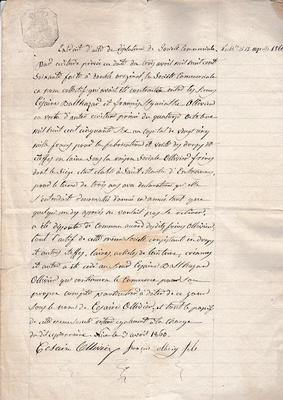 Extrait d'acte de dissolution de Société Commerciale,
Par écriture privée en date du trois avril mil huit cent
soixante faite à double original, la Société Commerciale
en nom collectif qui avait été contractée entre les Sieurs
Césaire Balthazard et François Hyacinthe Ollivier
en vertu d'autre écriture privée du quatorze Octobre
mil huit cent cinquante six, au capital de vingt cinq
mille francs pour la fabrication et vente des draps et
étoffes en laine sous la raison sociale Ollivier frères
dont le siège était établi à Saint Martin d'Entraunes,
pour le terme de trois ans avec déclaration qu'elle
s'entendrait renouvelée d'année en année tant que
quelqu'un des associés ne voulut pas se retirer,
a été dissoute de commun accord desdits frères Ollivier,
tout l'actif de cette même société consistant en draps
et autres étoffes, laines, articles de teinture, créances
et autres a été cédé au Sieur Césaire Balthazard
Ollivier qui continuera le commerce pour son
propre compte particulier à dater de ce jour
sous le nom de Césaire Ollivier, et tout le passif
de cette même société restera également à la charge
du dit cessionnaire. Nice le 3 avril 1860.
Césaire Ollivier françois